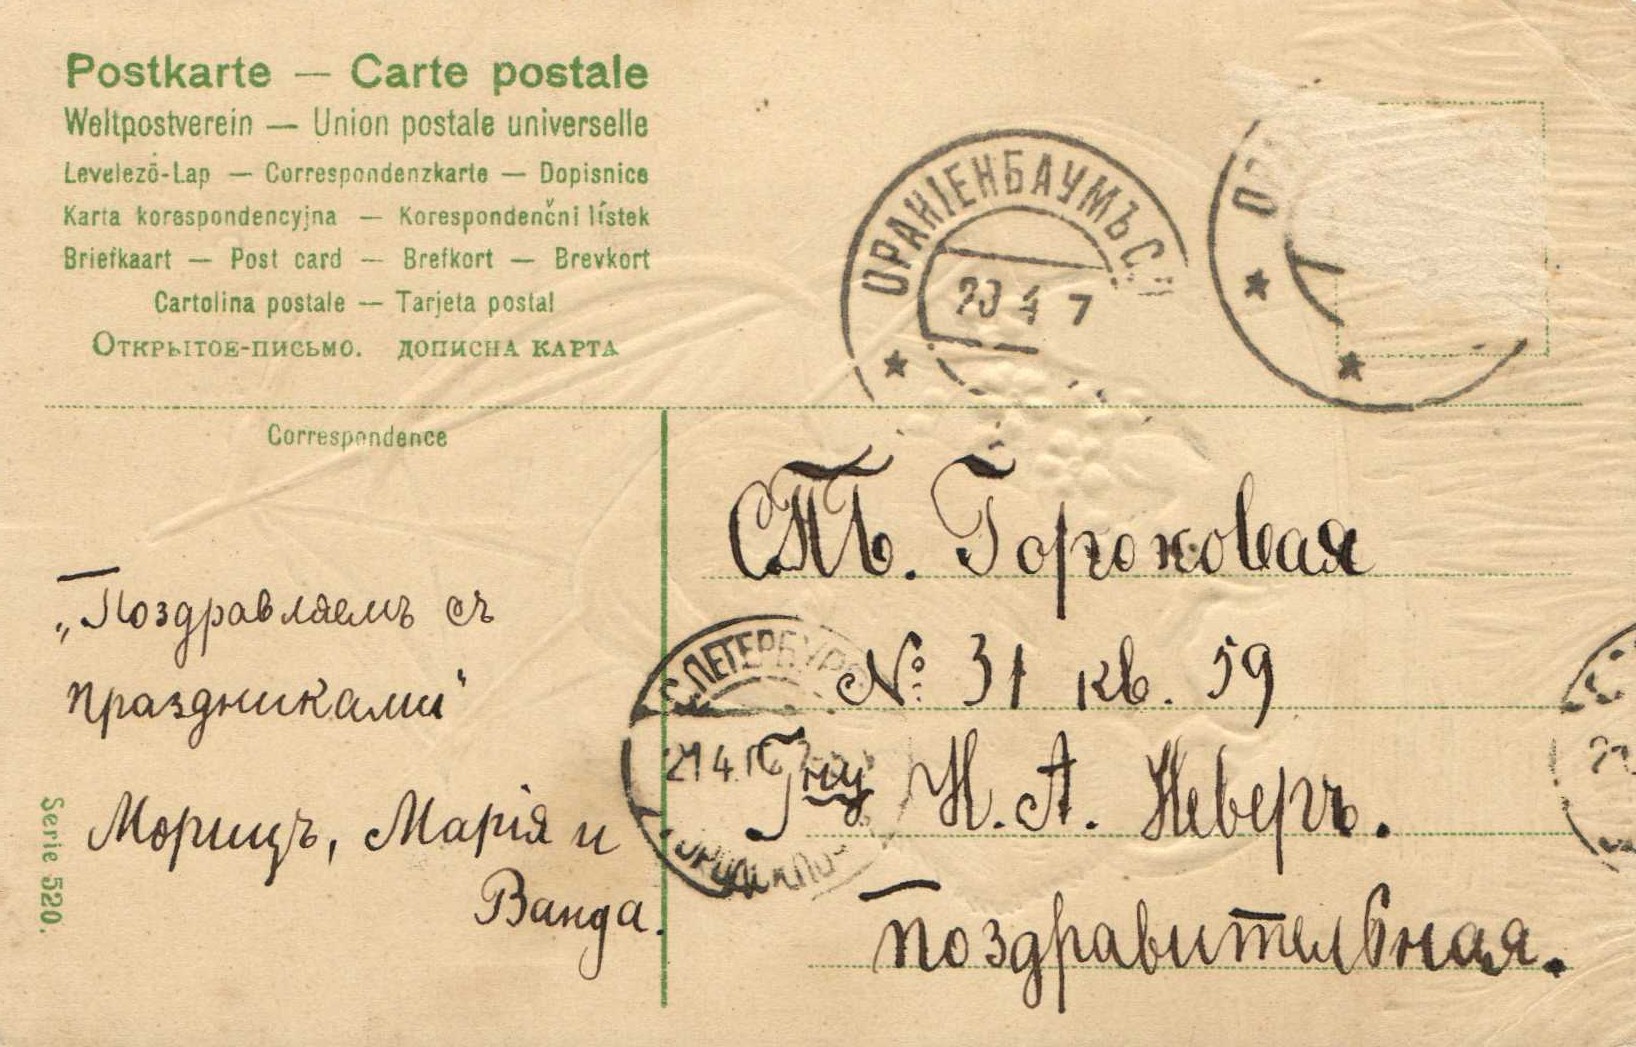 Postkarte — Carte postale
Weltpostverein — Union postale universelle
Levelező-Lap — Correspondenzkarte — Dopisnice
Karta korespondencyjna — Korespondenčni lístek
Briefkaart — Post card — Brefkort — Brevkort
Cartolina postale — Tarjeta postal
Открытое-письмо. дописна карта
Correspondence
ОРАНІЕНБАУМЪ С.
4 7
СПБ. Гороховая
№ 31 кв. 59
Гну Н. А. Неверъ.
Поздравительная.
С.ПЕТЕРБУРГ
21 4
„Поздравляемъ съ
праздниками"
Морицъ, Марія и
Ванда.
Serie 520.